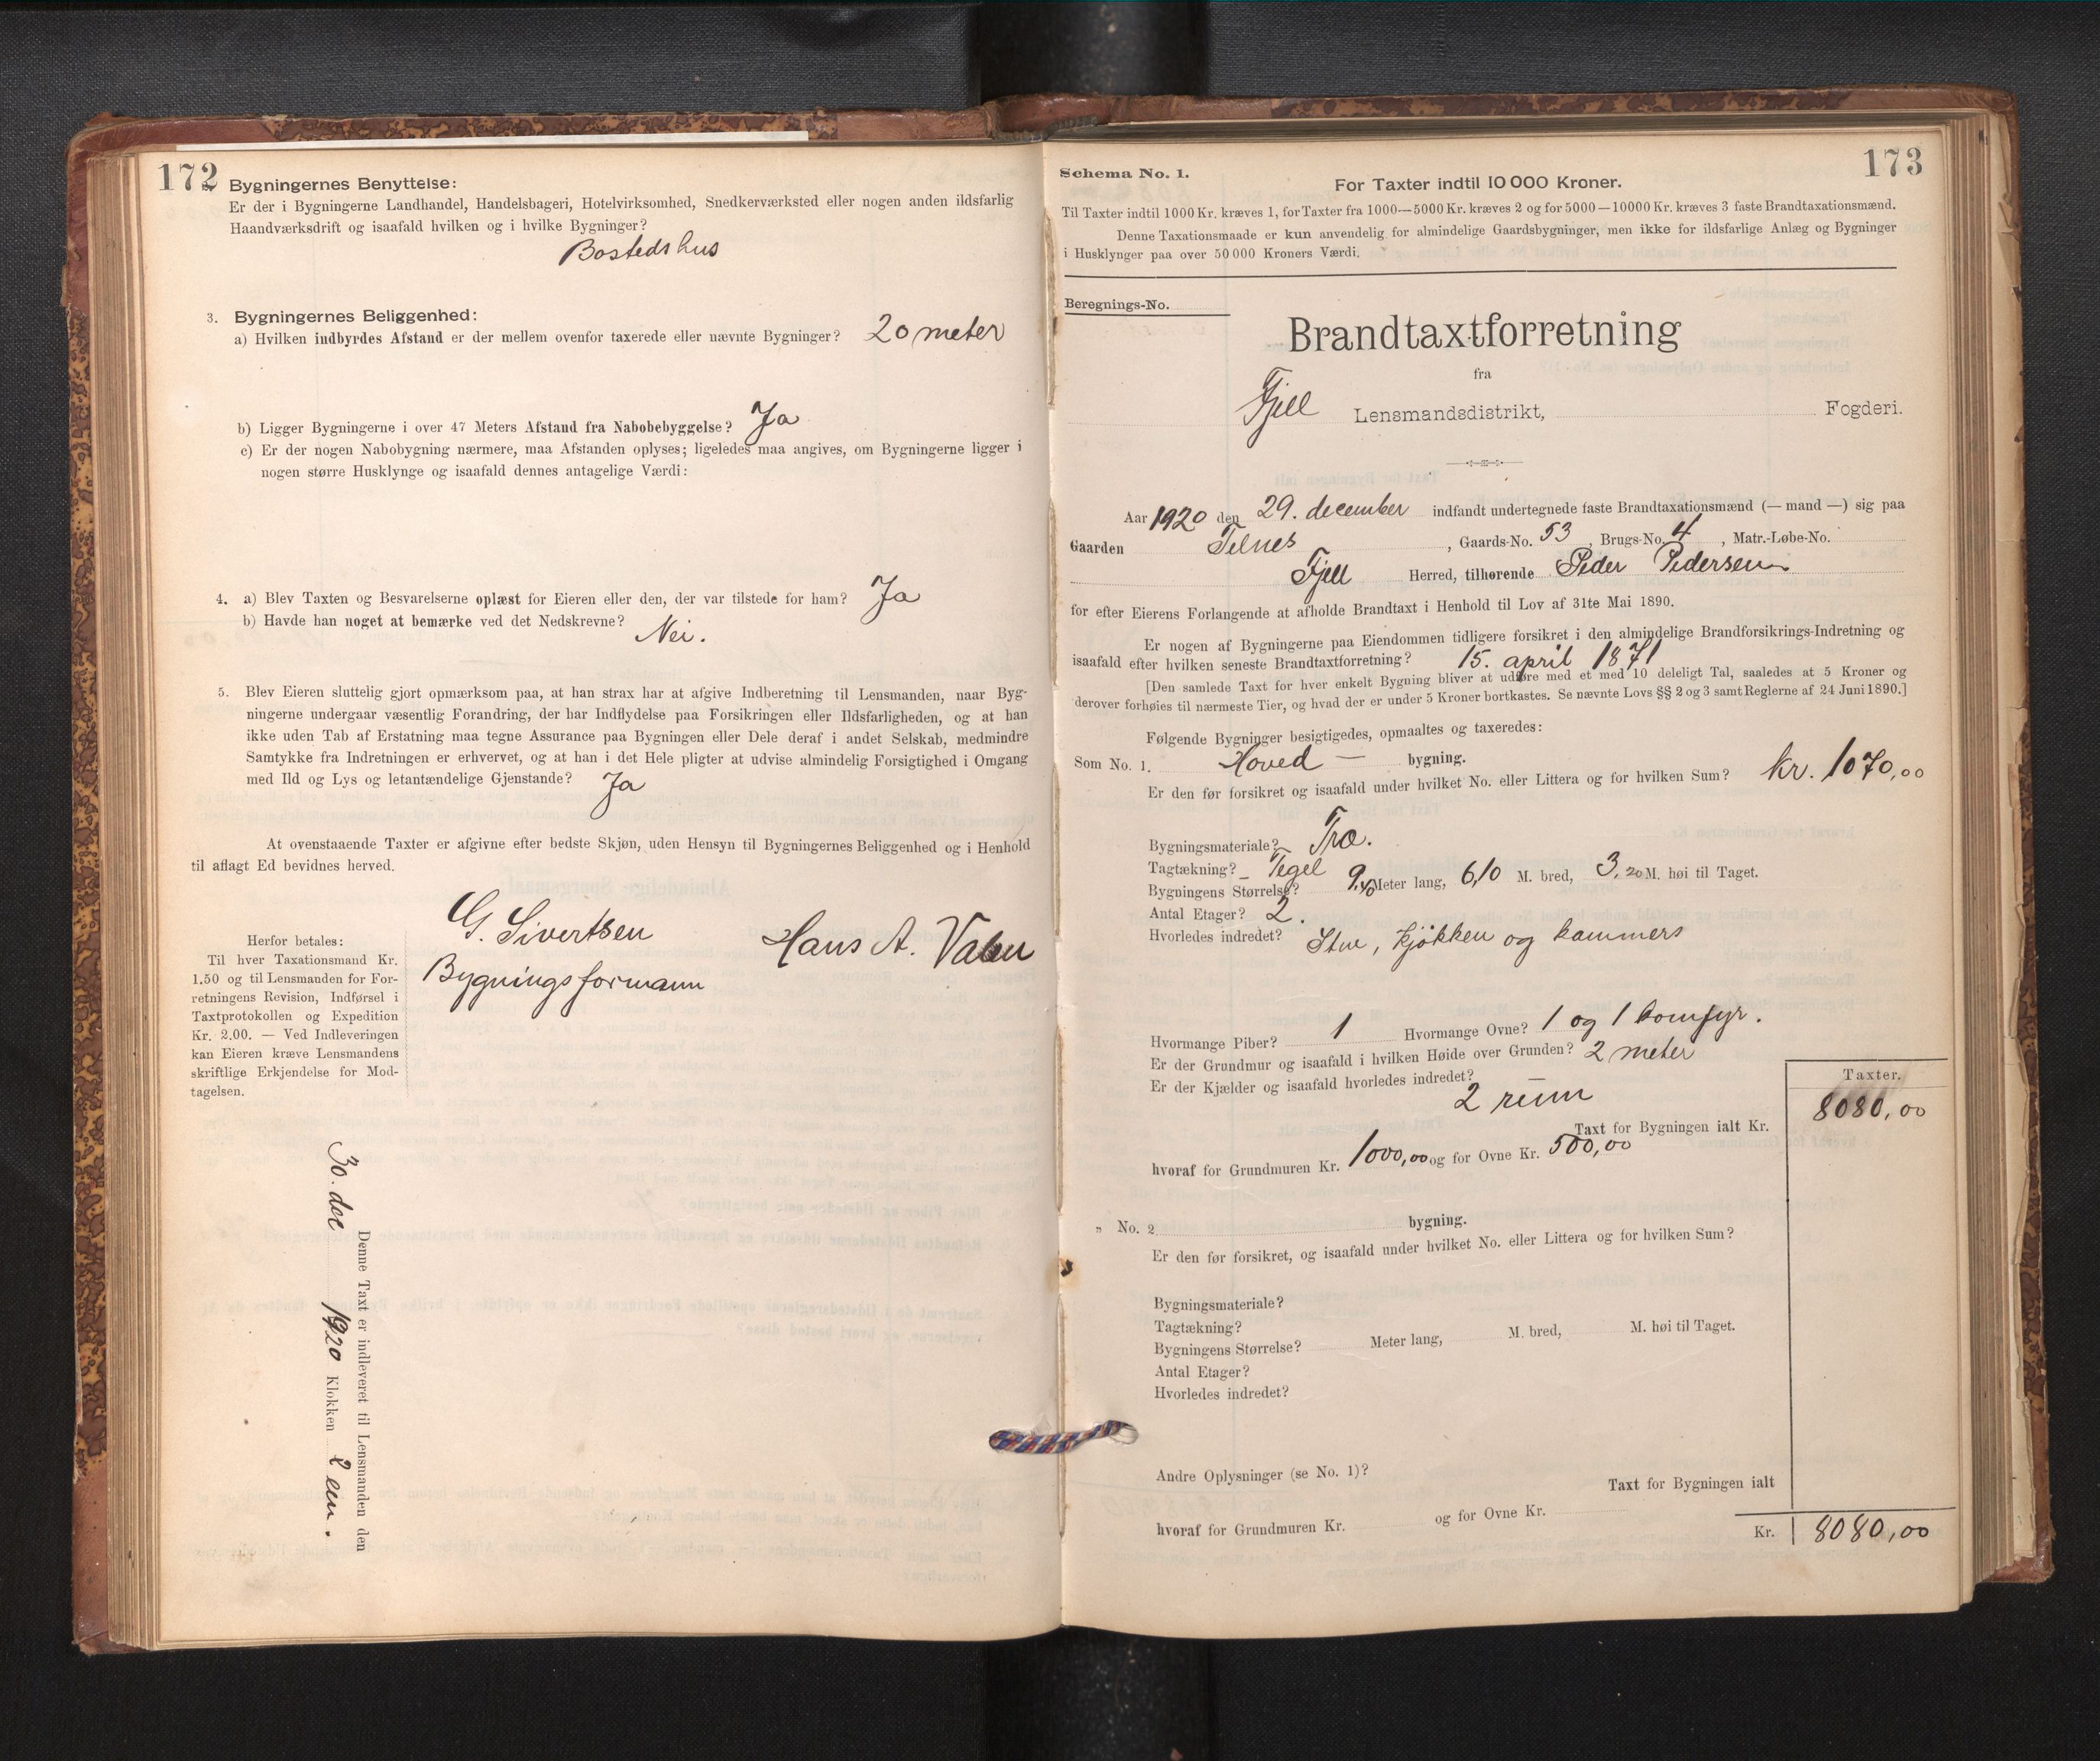 172
Bygningernes Benyttelse:
Er der i Bygningerne Landhandel, Handelsbageri, Hotelvirksomhed, Snedkerværksted eller nogen anden ildsfarlig
Haandværksdrift og isaafald hvilken og i hvilke Bygninger?
Bostedshus
3. Bygningernes Beliggenhed:
a) Hvilken indbyrdes Afstand er der mellem ovenfor taxerede eller nævnte Bygninger? 20 meter
b) Ligger Bygningerne i over 47 Meters Afstand fra Nabobebyggelse? Ja
c) Er der nogen Nabobygning nærmere, maa Afstanden oplyses; ligeledes maa angives, om Bygningerne ligger i
nogen større Husklynge og isaafald dennes antagelige Værdi:
4. a) Blev Taxten og Besvarelserne oplæst for Eieren eller den, der var tilstede for ham? Ja
b) Havde han noget at bemærke ved det Nedskrevne? Nei.
5. Blev Eieren sluttelig gjort opmærksom paa, at han strax har at afgive Indberetning til Lensmanden, naar Byg-
ningerne undergaar væsentlig Forandring, der har Indflydelse paa Forsikringen eller Ildsfarligheden, og at han
ikke uden Tab af Erstatning maa tegne Assurance paa Bygningen eller Dele deraf i andet Selskab, medmindre
Samtykke fra Indretningen er erhvervet, og at han i det Hele pligter at udvise almindelig Forsigtighed i Omgang
med Ild og Lys og letantændelige Gjenstande? Ja
At ovenstaaende Taxter er afgivne efter bedste Skjøn, uden Hensyn til Bygningernes Beliggenhed og i Henhold
til aflagt Ed bevidnes herved.
G. Sivertsen Hans A. Valen
Bygningsformann
Herfor betales:
Til hver Taxationsmand Kr.
1.50 og til Lensmanden for For-
retningens Revision, Indførsel i
Taxtprotokollen og Expedition
Kr. 2.00. — Ved Indleveringen
kan Eieren kræve Lensmandens
skriftlige Erkjendelse for Mod-
tagelsen.
Denne Taxt er indleveret til Lensmanden den
30. des 1920 Klokken 2 em.
173
Schema No. 1.
For Taxter indtil 10 000 Kroner.
Til Taxter indtil 1000 Kr. kræves 1, for Taxter fra 1000—5000 Kr. kræves 2 og for 5000—10000 Kr. kræves 3 faste Brandtaxationsmænd.
Denne Taxationsmaade er kun anvendelig for almindelige Gaardsbygninger, men ikke for ildsfarlige Anlæg og Bygninger
i Husklynger paa over 50 000 Kroners Værdi.
Beregnings-No.
Brandtaxtforretning
fra
Fjell Lensmandsdistrikt, Fogderi.
Aar 1920 den 29. december indfandt undertegnede faste Brandtaxationsmænd (— mand —) sig paa
Gaarden Telnes, Gaards-No. 53, Brugs-No. 4, Matr.-Løbe-No.
Fjell Herred, tilhørende Peder Pedersen
for efter Eierens Forlangende at afholde Brandtaxt i Henhold til Lov af 31te Mai 1890.
Er nogen af Bygningerne paa Eiendommen tidligere forsikret i den almindelige Brandforsikrings-Indretning og
isaafald efter hvilken seneste Brandtaxtforretning? 15. april 1871
[Den samlede Taxt for hver enkelt Bygning bliver at udføre med et med 10 deleligt Tal, saaledes at 5 Kroner og
derover forhøies til nærmeste Tier, og hvad der er under 5 Kroner bortkastes. Se nævnte Lovs §§ 2 og 3 samt Reglerne af 24 Juni 1890.]
Følgende Bygninger besigtigedes, opmaaltes og taxeredes:
Som No. 1. Hoved — bygning.
Er den før forsikret og isaafald under hvilket No. eller Littera og for hvilken Sum? kr. 1070,00
Bygningsmateriale? Træ.
Tagtækning? Tegel
Bygningens Størrelse? 9,40 Meter lang, 6,10 M. bred, 3,20 M. høi til Taget.
Antal Etager? 2.
Hvorledes indredet? Stue, kjøkken og kammers
Hvormange Piber? 1 Hvormange Ovne? 1 og 1 komfyr.
Er der Grundmur og isaafald i hvilken Høide over Grunden? 2 meter
Er der Kjælder og isaafald hvorledes indredet?
2 rum
Taxter.
Taxt for Bygningen ialt Kr. 8080,00
hvoraf for Grundmuren Kr. 1000,00 og for Ovne Kr. 500,00
„ No. 2 bygning.
Er den før forsikret, og isaafald under hvilket No. eller Littera og for hvilken Sum?
Bygningsmateriale?
Tagtækning?
Bygningens Størrelse? Meter lang, M. bred, M. høi til Taget.
Antal Etager?
Hvorledes indredet?
Andre Oplysninger (se No. 1)?
Taxt for Bygningen ialt
hvoraf for Grundmuren Kr. og for Ovne Kr.
Kr. 8080,00